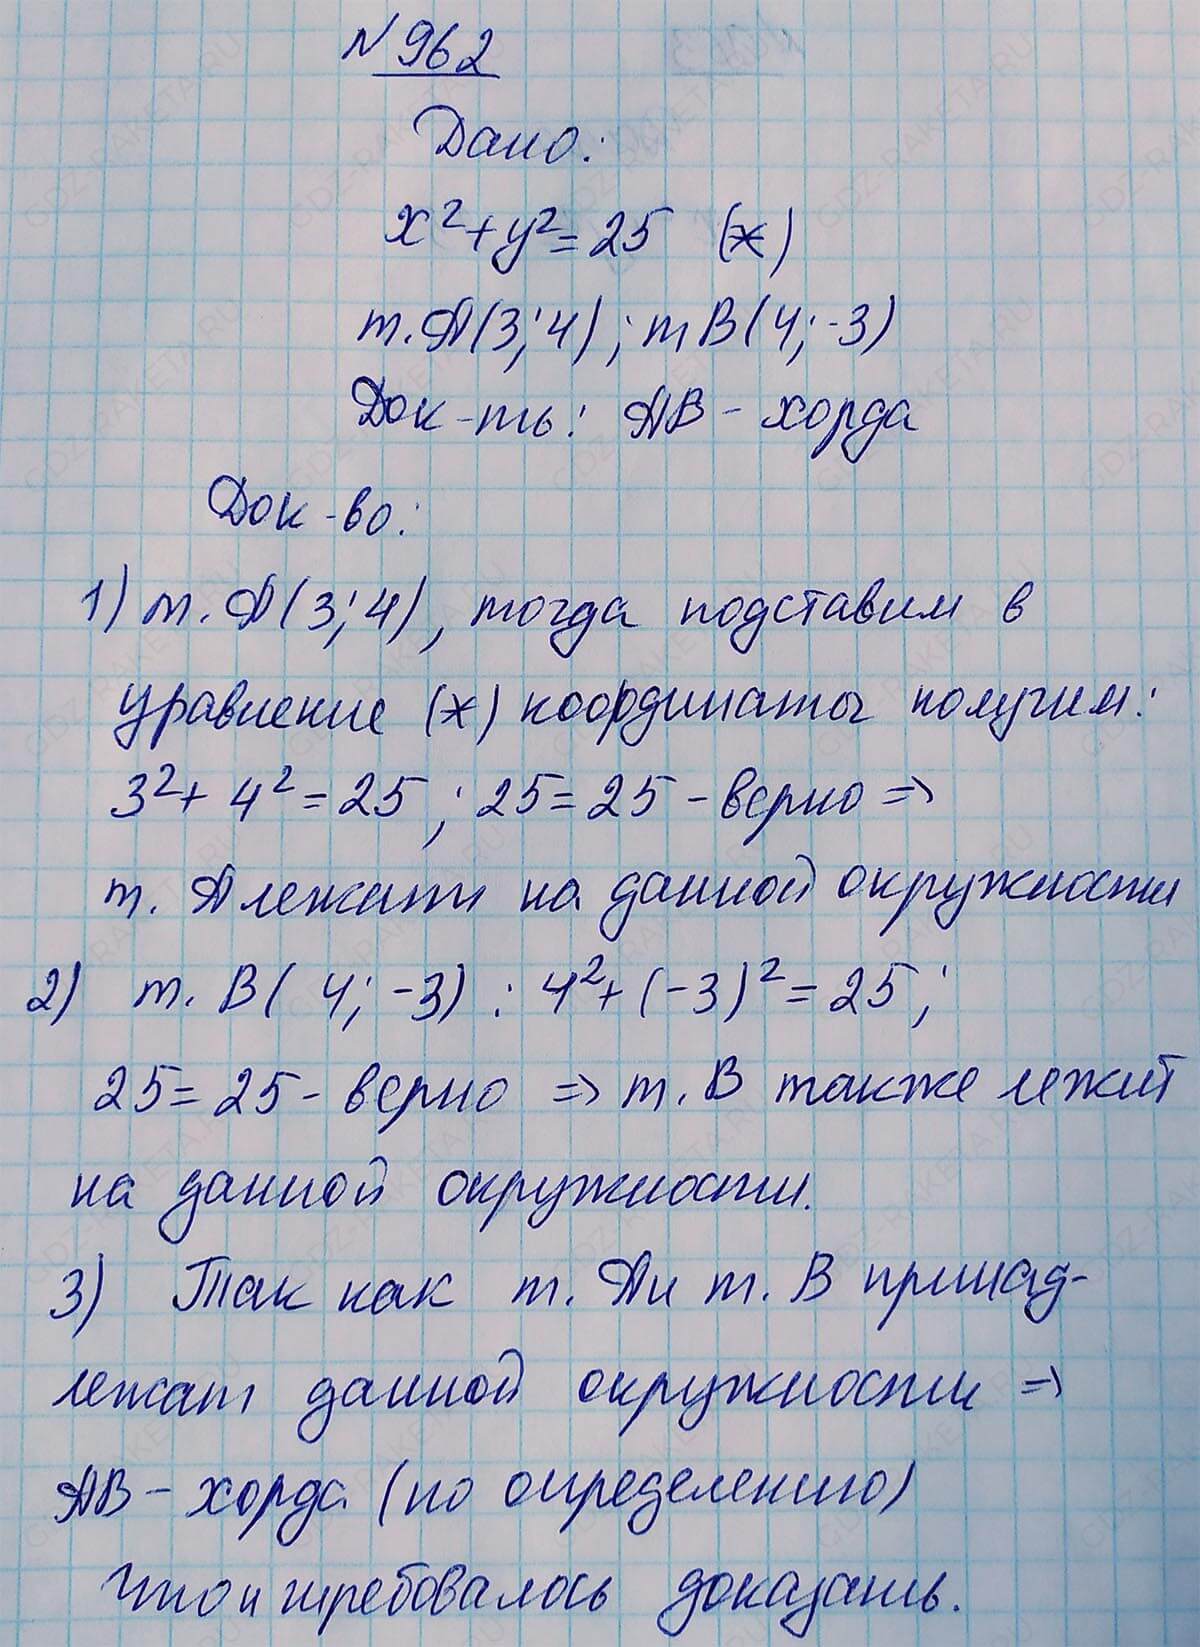 №962
Дано:
x²+y²=25 (*)
т.A(3;4); т B(4;-3)
Док-ть: AB - хорда
Док-во:
1) т. A(3;4), тогда подставим в
уравнение (*) координаты получим:
3²+4²=25; 25=25 - верно =>
т. A лежит на данной окружности
2) т. B(4;-3): 4²+(-3)²=25;
25=25 - верно => т. B также лежит
на данной окружности.
3) Так как т. A и т. B принад-
лежат данной окружности =>
AB - хорда (по определению)
Что и требовалось доказать.